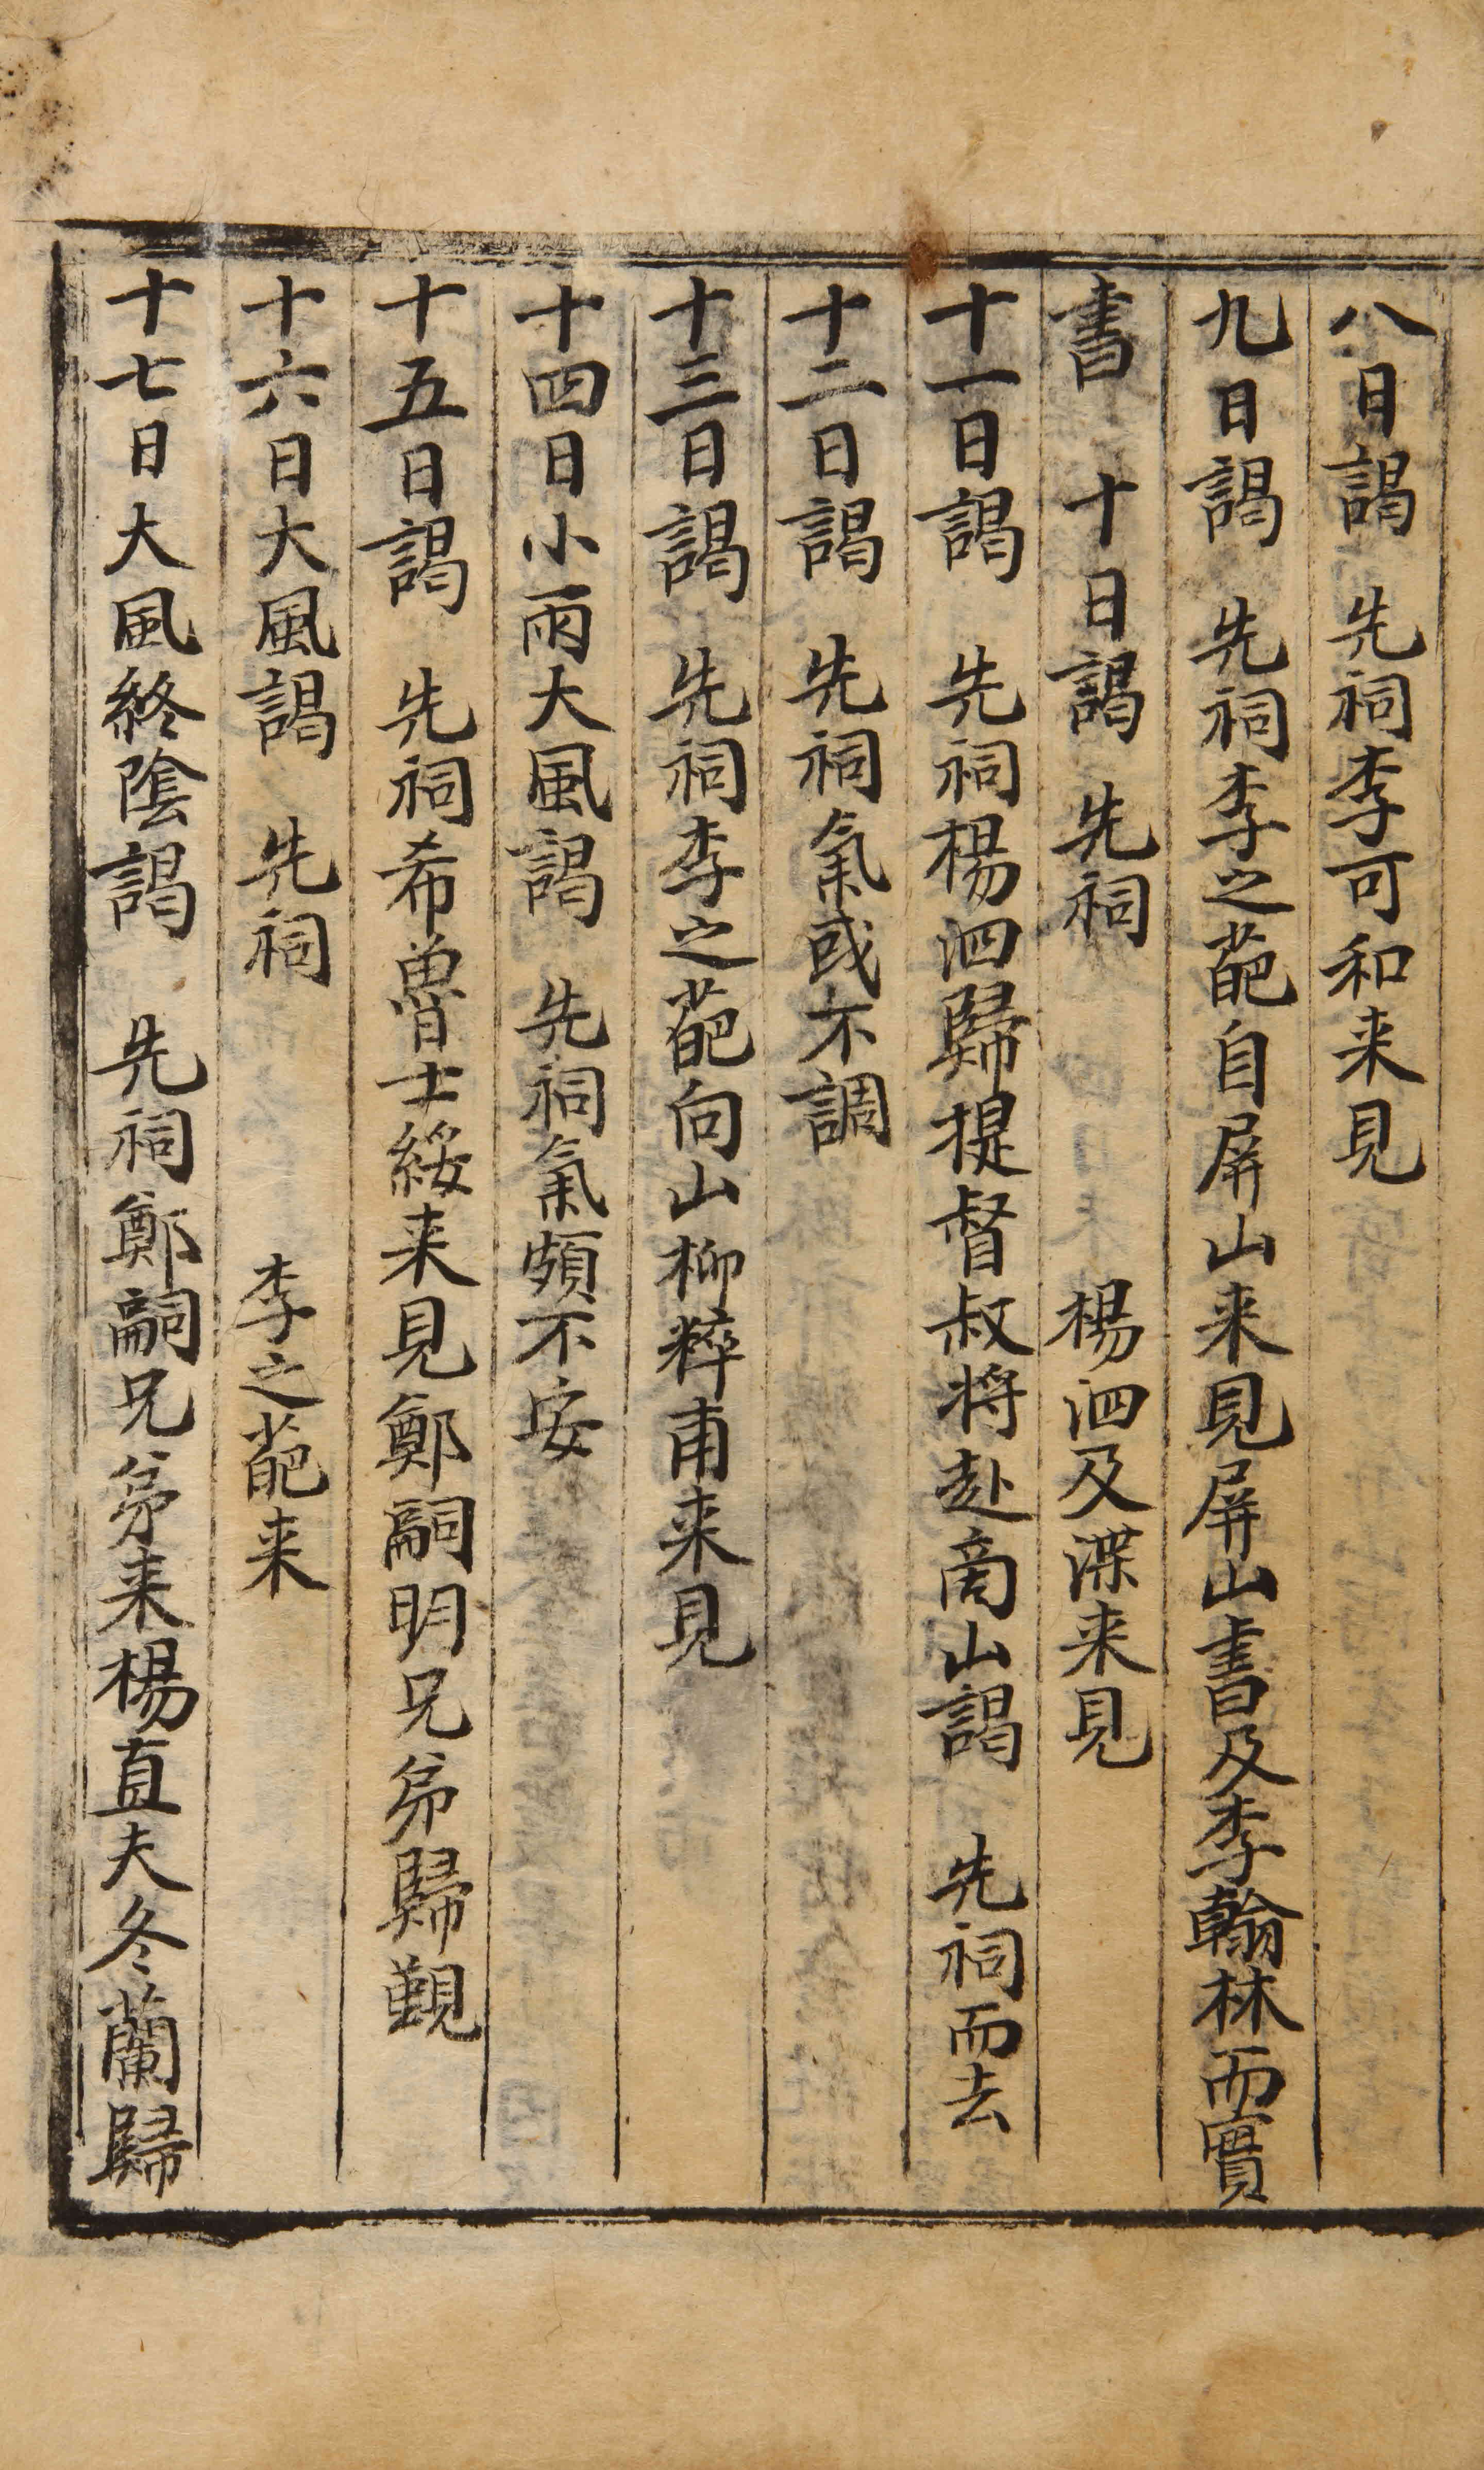 八日謁 先祠李可和来見
九日謁 先祠李之葩自屏山来見屏山書及李翰林而實
書 十日謁 先祠 楊泗及渫来見
十一日謁 先祠楊泗歸提督叔将赴啇山謁 先祠而去
十二日謁 先祠氣或不調
十三日謁 先祠李之葩向山柳粹甫来見
十四日小雨大風謁 先祠氣頗不安
十五日謁 先祠希魯士綏来見鄭嗣明兄弟歸覲
十六日大風謁 先祠 李之葩来
十七日大風終陰謁 先祠鄭嗣兄弟来楊直夫冬蘭歸